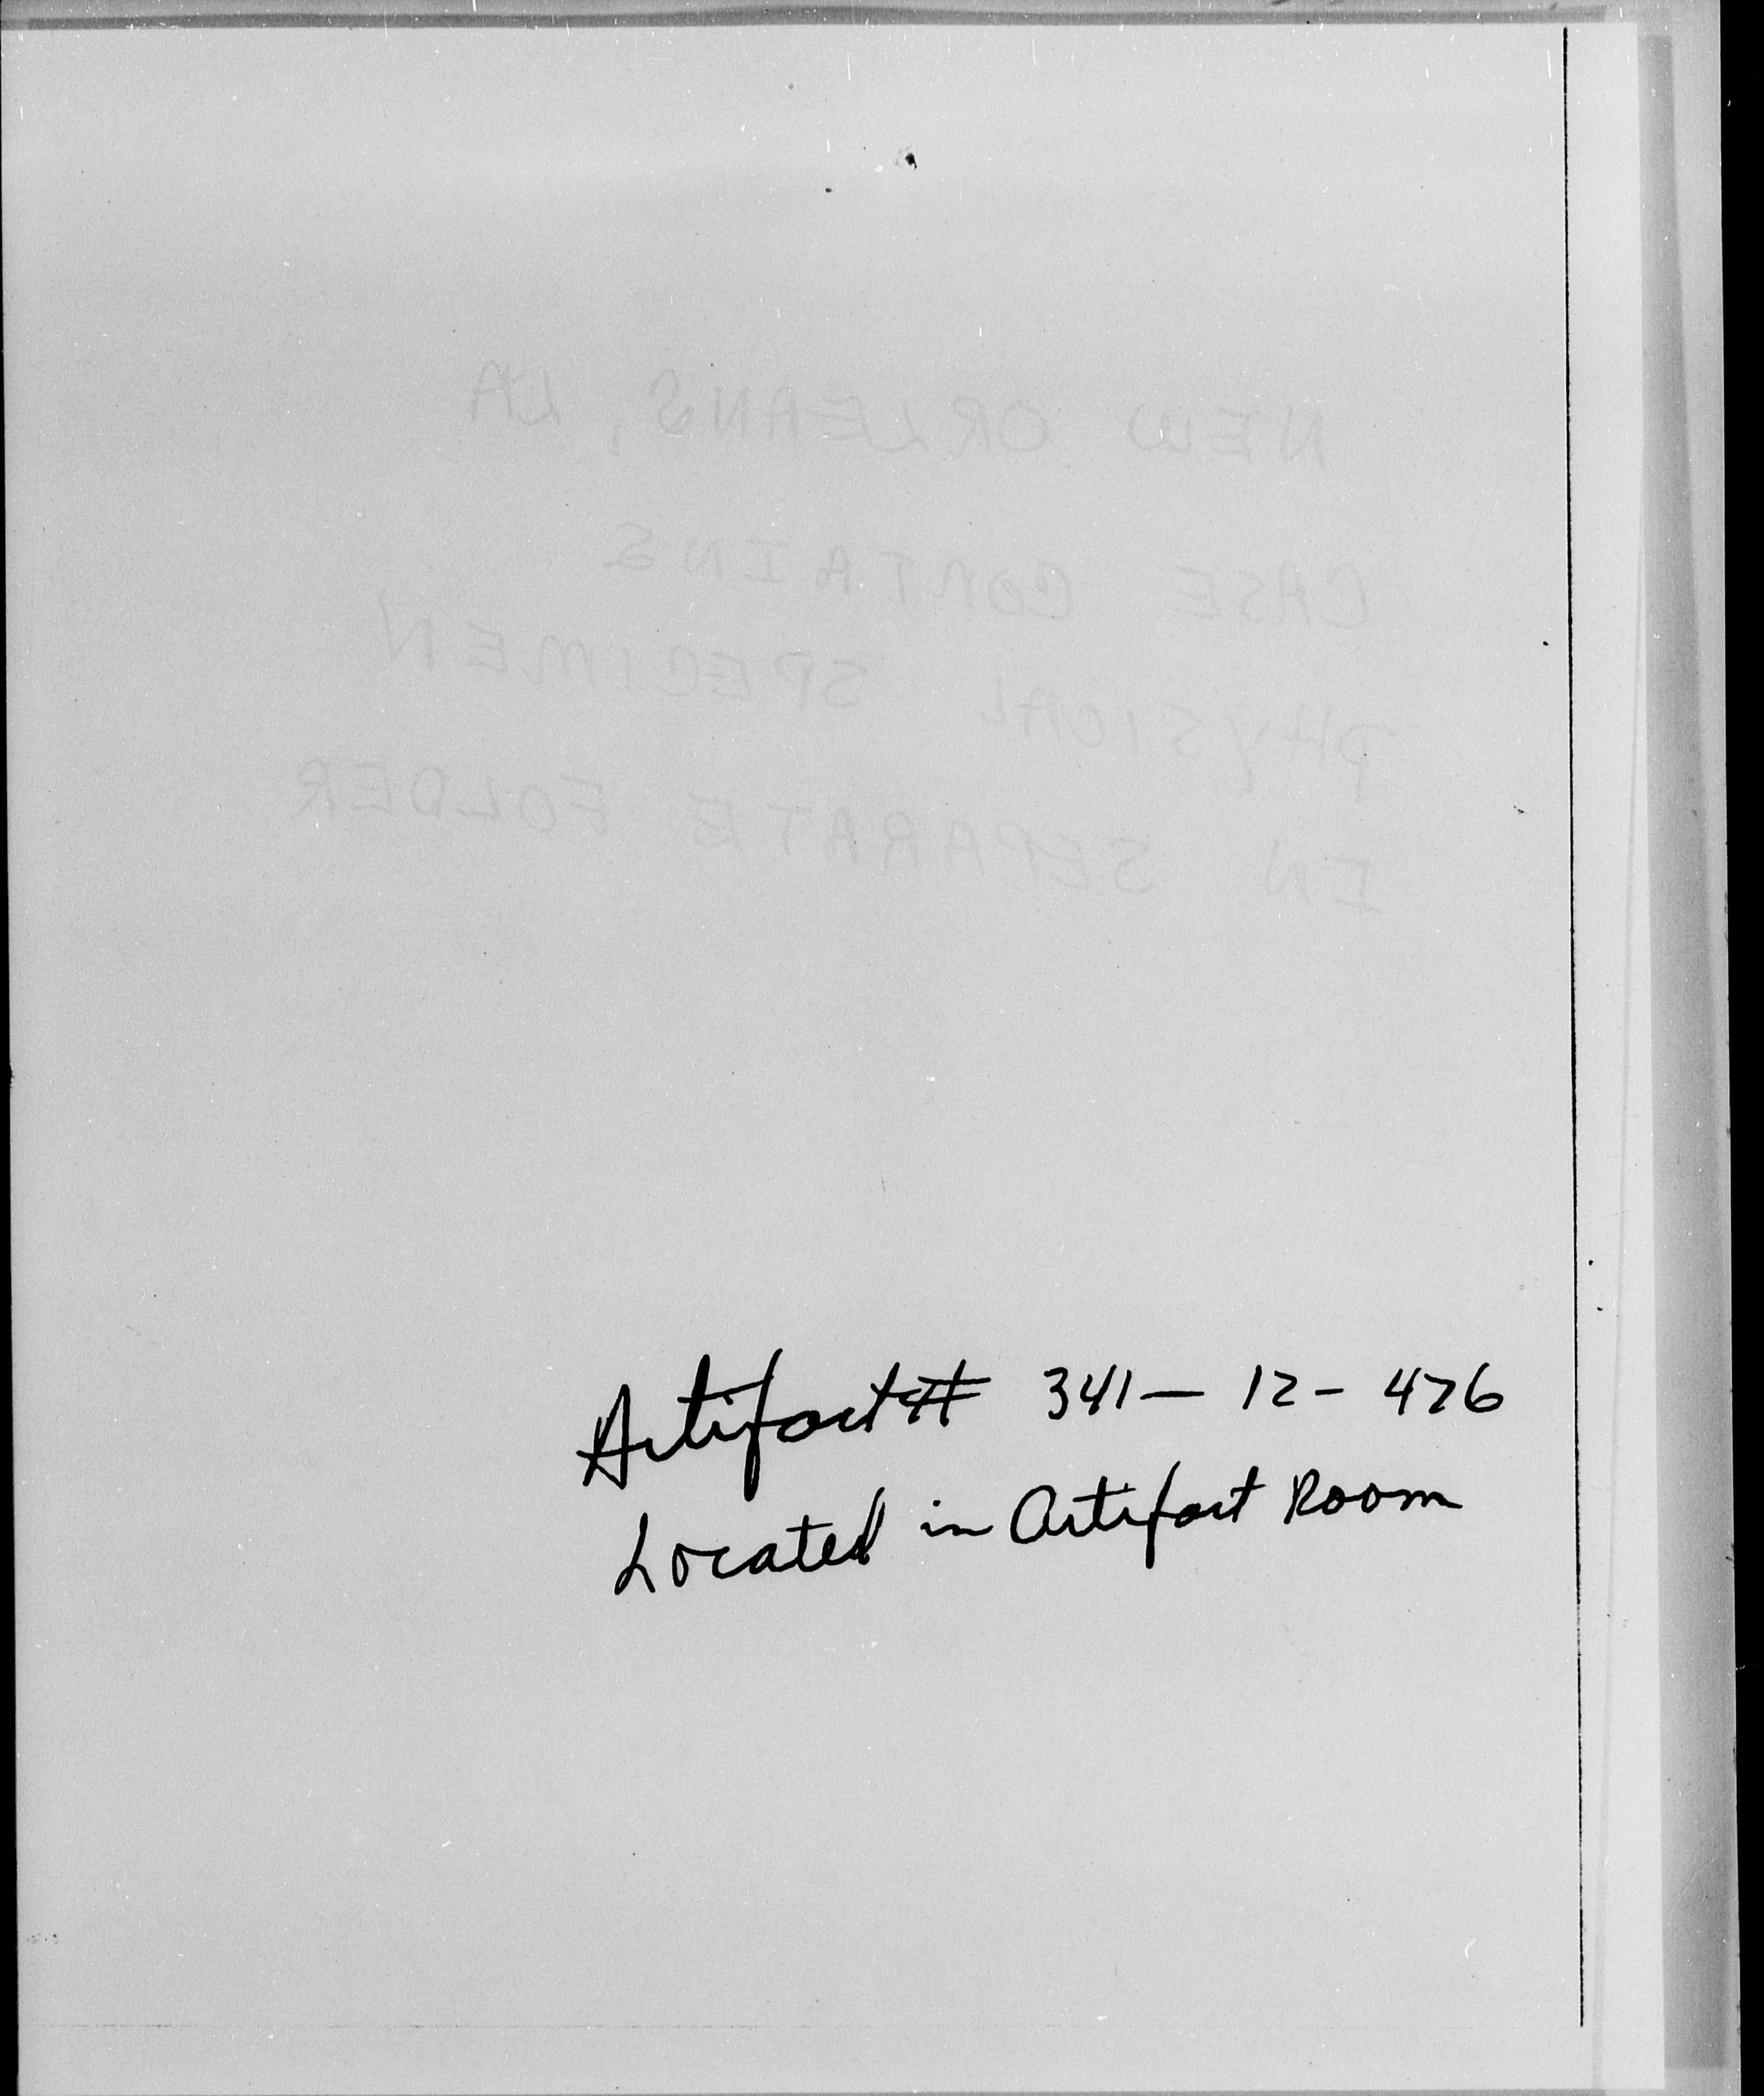 NEW ORLEANS, LA
CASE CONTAINS
PHYSICAL SPECIMEN
IN SEPARATE FOLDER
Artifact# 341- 12- 476
Located in Artifact Room